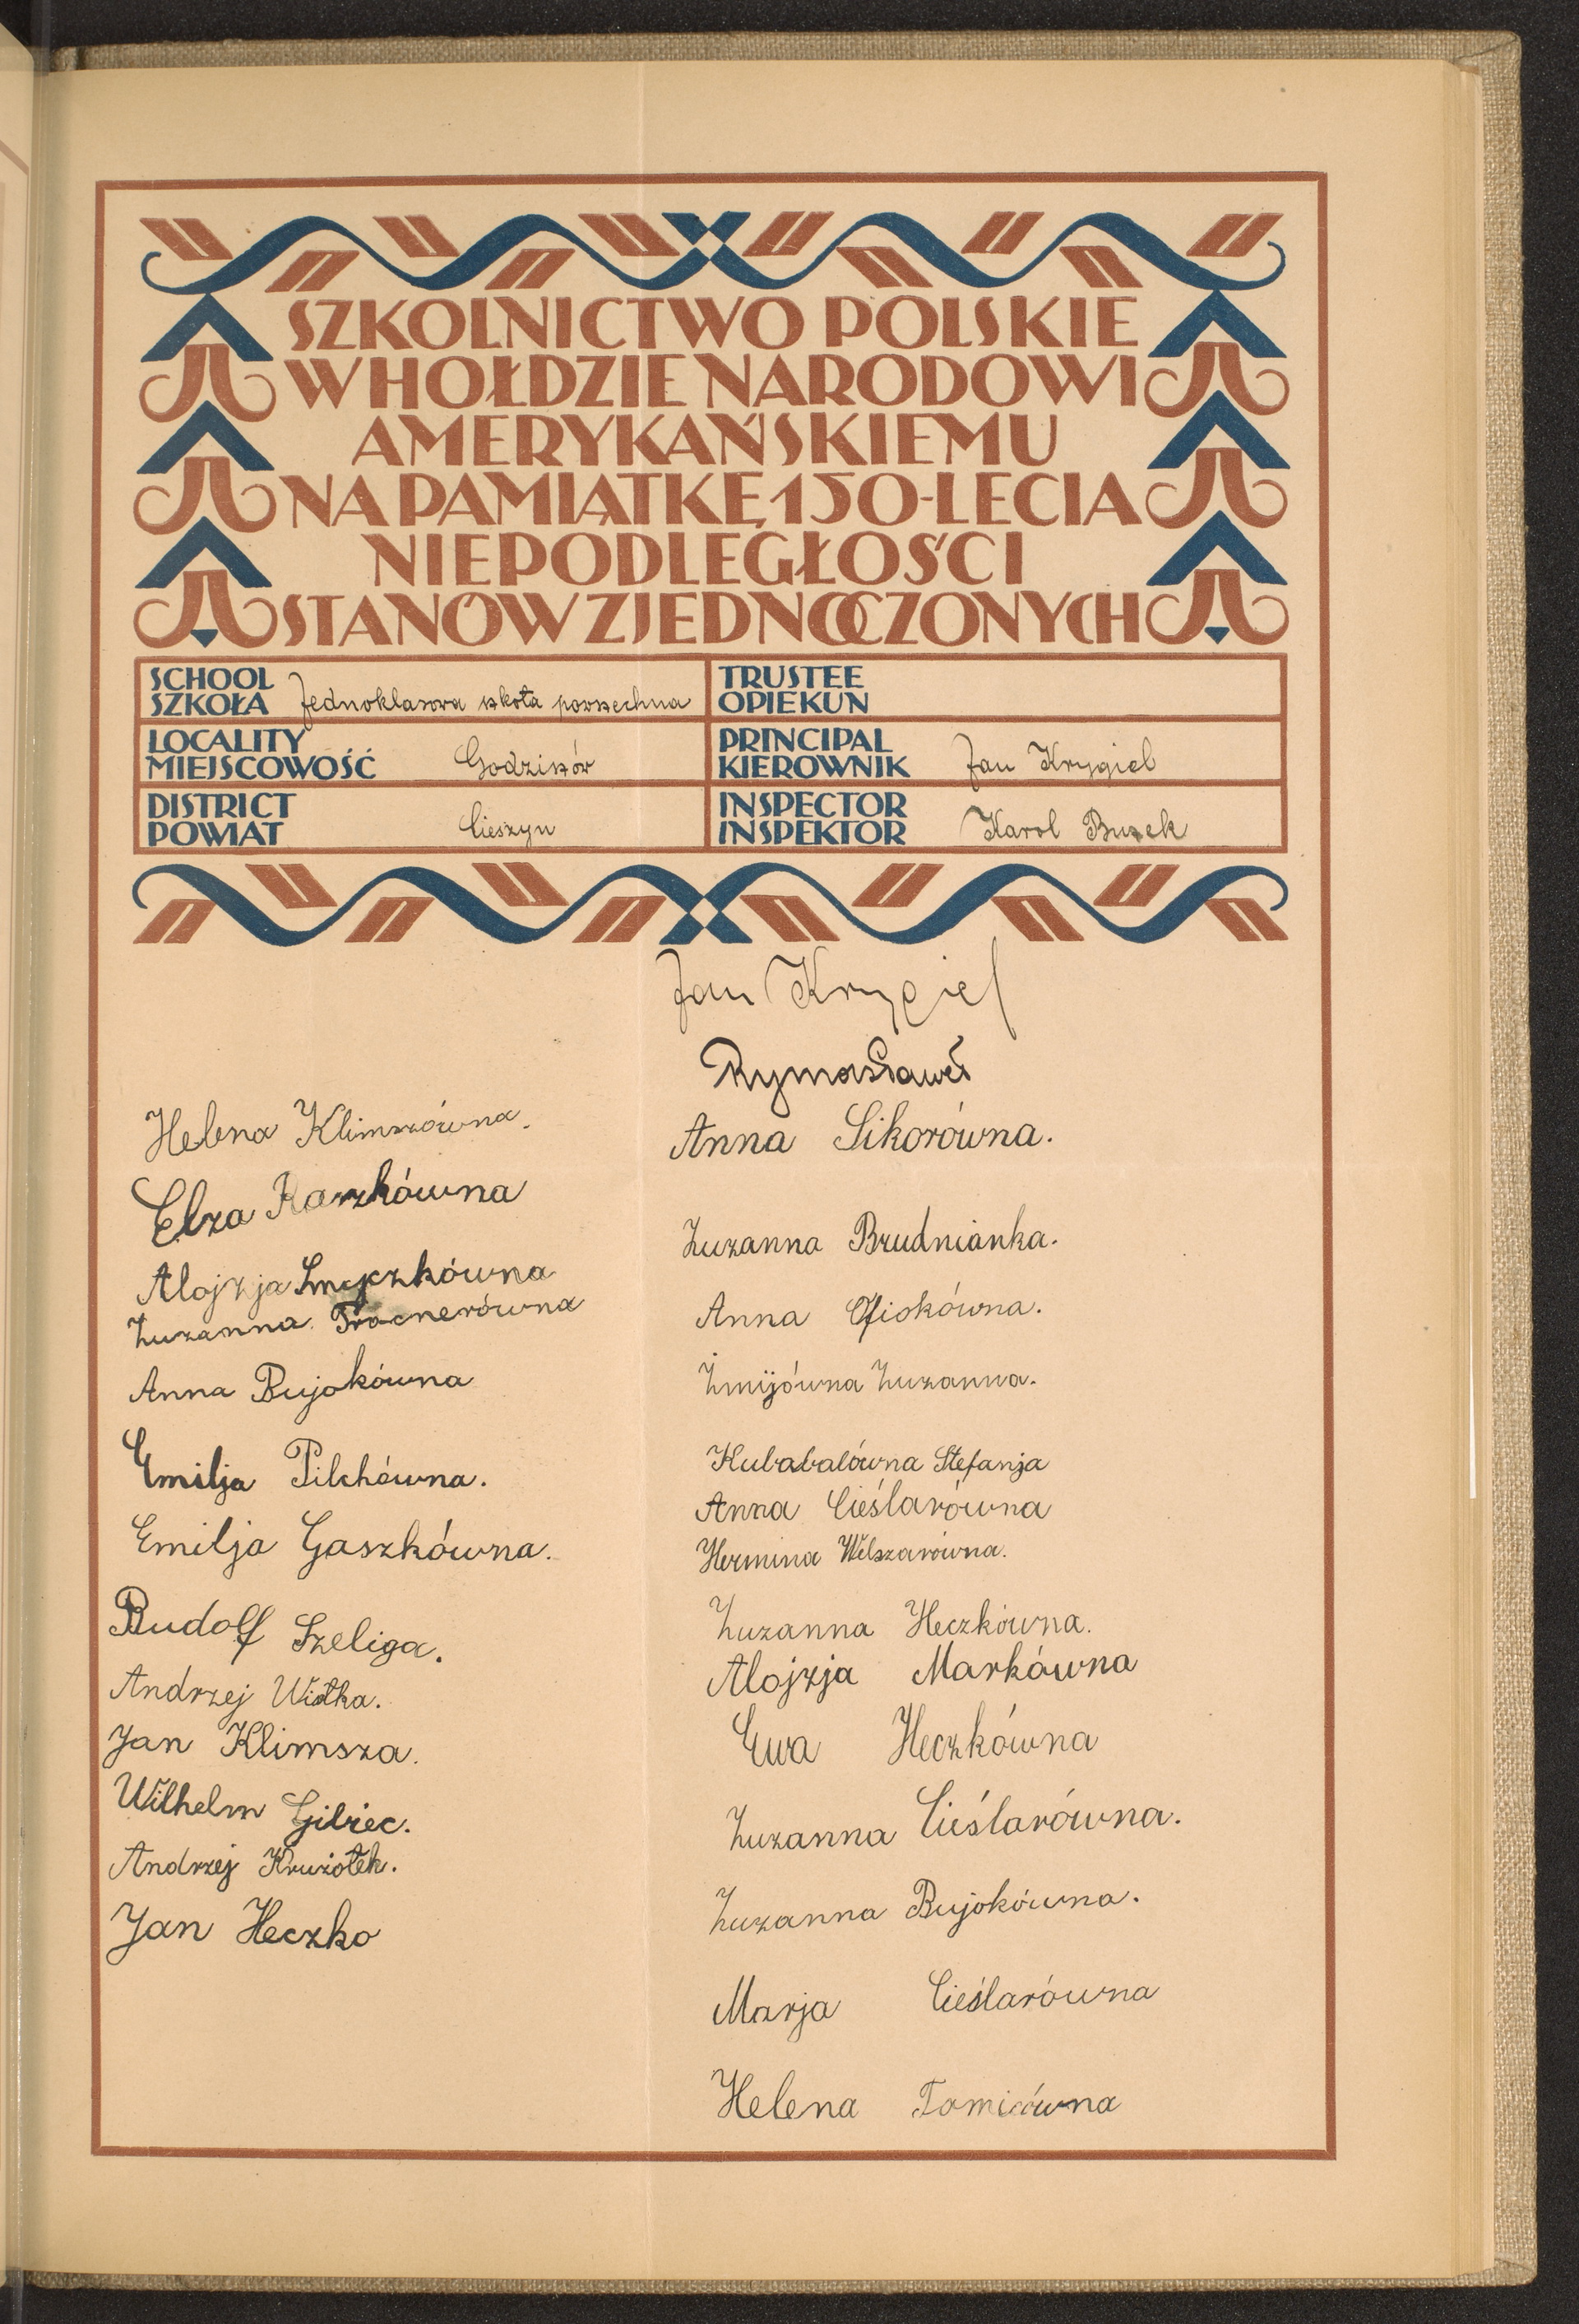 SZKOLNICTWO POLSKIE
W HOŁDZIE NARODOWI
AMERYKAŃSKIEMU
NA PAMIĄTKĘ 150-LECIA
NIEPODLEGŁOŚCI
STANÓW ZJEDNOCZONYCH
SCHOOL
SZKOŁA Jednoklasowa szkoła powszechna
TRUSTEE
OPIEKUN
LOCALITY
MIEJSCOWOŚĆ Godziszów
PRINCIPAL
KIEROWNIK Jan Krygiel
DISTRICT
POWIAT Cieszyn
INSPECTOR
INSPEKTOR Karol Buzek
Jan Krygiel
Helena Klimszówna.
Elza Kaszkówna
Alojzja
Zuzanna Tracnerówna
Anna Bujokówna
Emilja Pilchówna.
Emilja Gaszkówna.
Rudolf Szeliga.
Andrzej Wisłka.
Jan Klimsza.
Wilhelm Gibiec.
Andrzej Krużołek.
Jan Heczko
Anna Sikorówna.
Zuzanna Brudnianka.
Anna
Żmijówna Zuzanna.
Kubabalówna Stefanja
Anna Cieślarówna
Hermina Welszarówna.
Zuzanna Heczkówna.
Alojzja Markówna
Ewa Heczkówna
Zuzanna Cieślarówna.
Zuzanna Bujokówna.
Marja Cieślarówna
Helena